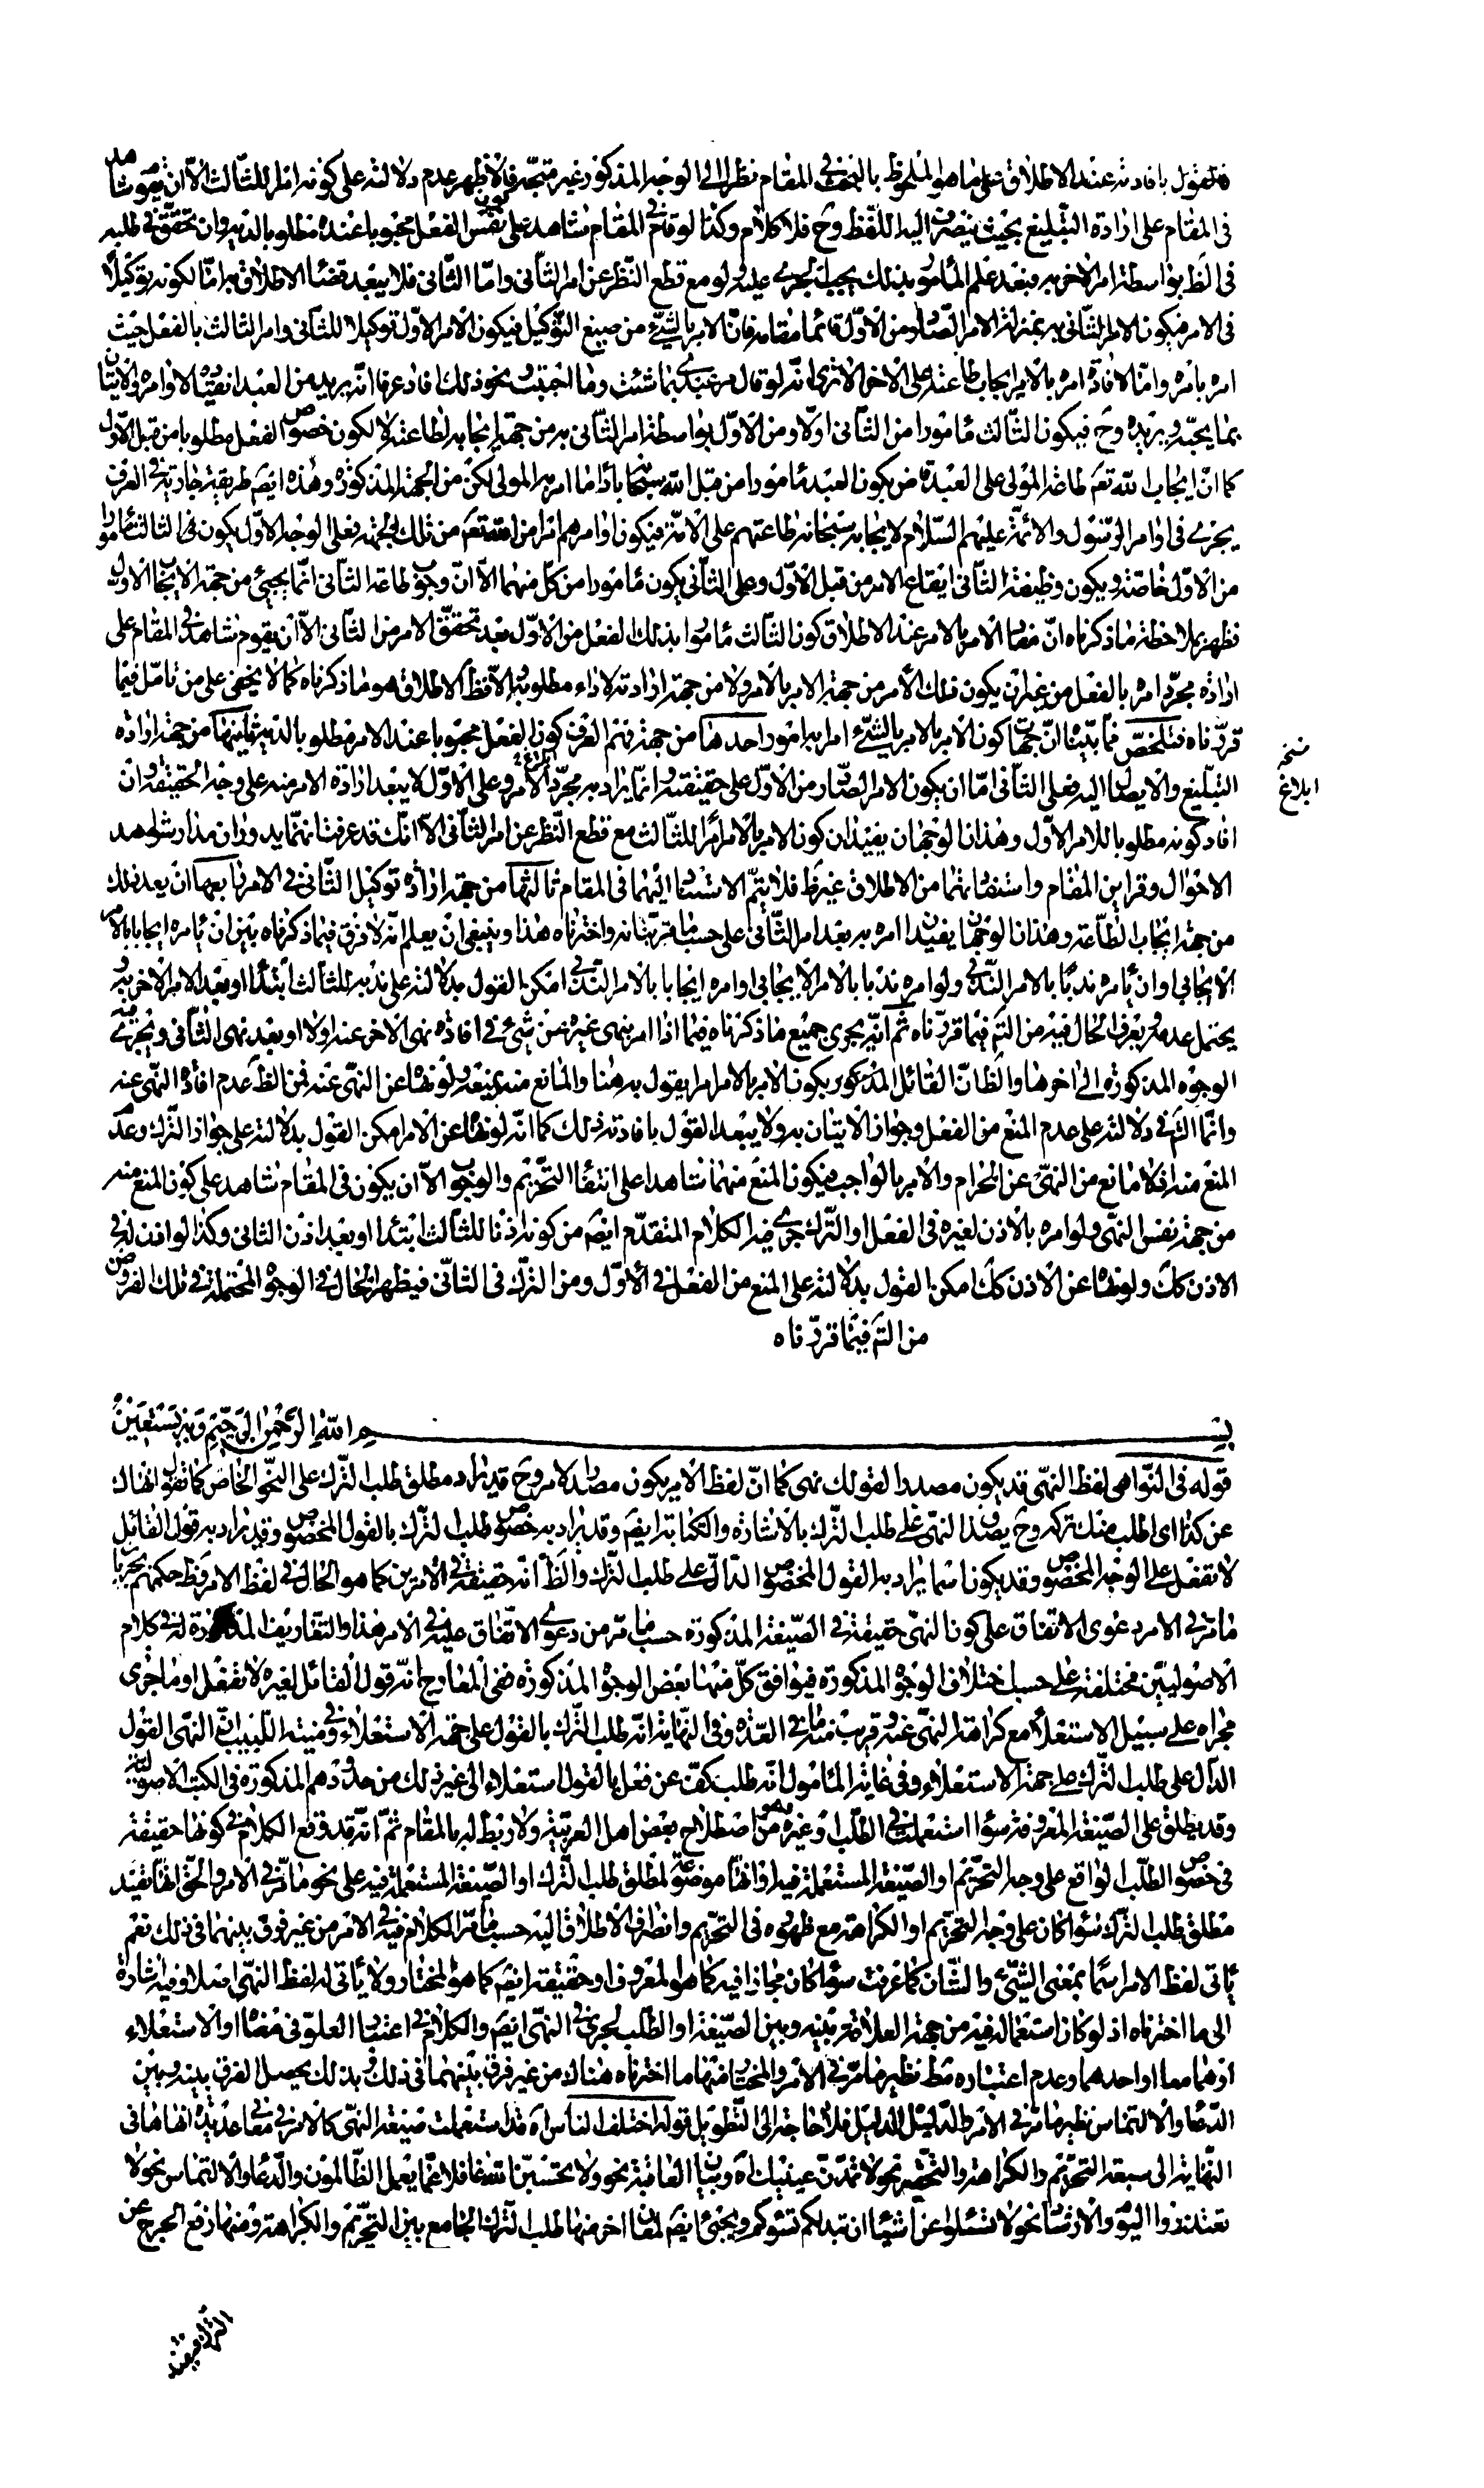 فالقول بافادته عند الاطلاق على ما هو الملحوظ بالبحث فى المقام نظرا الى الوجه المذكور غير متجه فالاظهر عدم دلالته على كونه امرا للثالث الا ان يقوم شاهد
فى المقام على ارادة التبليغ بحيث ينصرف اليه اللفظ وح فلا كلام وكذا لو قام فى المقام شاهد على كون نفس الفعل محبوبا عنده مطلوبا لديه وان تحقق طلبه
فى الظ بواسطة امر الاخر به فبعد علم المأمور بذلك يجب الجرى عليه ولو مع قطع النظر عن امر الثانى واما الثانى فلا يبعد قضاء الاطلاق به امّا لكونه توكيلا
فى الامر فيكون الامر الثانى به بمنزلة الامر الصادر من الاول قائما مقامه فان الامر بالشىء من صيغ التوكيل فيكون الامر الاول توكيلا للثانى وامر الثالث بالفعل حيث
امره بامره وامّا لافادة امره بالامر ايجاب طاعته على الاخر الا ترى انه لو قال مر عبدى بما شئت وما احببت ونحو ذلك افاد عرفا انه يريد من العبد انقياده لاوامره فى الاتيان
بما يحبه ويريده وح فيكون الثالث مأمورا من الثانى اولا ومن الاول بواسطة امر الثانى به من جهة ايجابه لطاعته لا لكون خصوص الفعل مطلوبا من قبل الاول
كما ان ايجاب الله تعم طاعة المولى على العبد ة ض بكون العبد مأمورا من قبل الله سبحانه باداء ما امر به المولى لكن من الجهة المذكورة وهذه ايضم طريقة جارية فى العرف
يجرى فى اوامر الرسول والائمة عليهم السلام لايجابه سبحانه طاعتهم على الامة فيكون اوامرهم امرا من الله تعم من تلك الجهة فعلى الوجه الاول يكون فى الثالث مأمورا
من الاول خاصة ويكون وظيفة الثانى ايقاع الامر من قبل الاول وعلى الثانى يكون مأمورا من كل منهما الا ان وجوب طاعة الثانى انما يجىء من جهة الايجاب الاول
فظهر بملاحظة ما ذكرناه ان مفاد الامر بالامر عند الاطلاق كون الثالث مأمورا بذلك الفعل من الاول بعد تحقق الامر من الثانى الا ان يقوم شاهد فى المقام على
ارادة مجرد امره بالفعل من غير ان يكون ذلك الامر من جهة الامر بالامر ولا من جهة ارادته لاداء مطلوبه الا ان قضاء الاطلاق هو ما ذكرناه كما لا يخفى على من تامل فيما
قررناه فتلخص مما بيناه ان جهات كون الامر بالامر بالشىء امرا به امور احدها من جهة فهم العرف كون الفعل محبوبا عند الامر مطلوبا لديه ثانيها من جهة ارادة
التبليغ والايصال اليه فعلى الثانى امّا ان يكون الامر الصادر من الاول على حقيقته وانما يراد به مجرد الابلاغ وعلى الاول لا يبعد ارادة الامر منه على وجه الحقيقة وان
افاد كونه مطلوبا للامر الاول وهذان الوجهان يفيدان كون الامر بالامر امرا للثالث مع قطع النظر عن امر الثانى الا انك قد عرفت انهما يدوران مدار شواهد
الاحوال وقراين المقام واستفادتهما من الاطلاق غير ظ فلا يتم الاستناد اليهما فى المقام ثالثها من جهة ارادة توكيل الثانى فى الامر رابعها ان يعد ذلك
من جهة ايجاب الطاعة وهذان الوجهان يفيدان امره به بعد امر الثانى على حسب ما قررناه واخترناه هذا وينبغى ان يعلم انه لا فرق فيما ذكرناه بين ان يامره ايجابا بالامر
الايجابى وان يامره ندبا بالامر الندبى ولو امره ندبا بالامر الايجابى او امره ايجابا بالامر الندبى امكن القول بدلالته على ندبه للثالث ابتداء او بعد الامر الاخر به و
يحتمل عدمه يعرف الحال فيه من التم فيما قررناه ثم انه يجرى جميع ما ذكرناه فيما اذا امر بنهى غيره عن شىء فى افادة نهى الاخر عنه اولا او بعد نهى الثانى ويجرى فيه
الوجوه المذكورة الى اخرها والظ ان القائل المذكور بكون الامر بالامر امرا يقول به هنا والمانع منه يمنعه ولو نهاه عن النهى عنه فمن الظ عدم افادة النهى عنه
وانما التم فى دلالته على عدم المنع من الفعل وجواز الاتيان به ولا يبعد القول بافادته ذلك كما انه لو نهاه عن الامر امكن القول بدلالته على جواز الترك وعدم
المنع منه اذ لا مانع من النهى عن الحرام والامر بالواجب فيكون المنع منهما شاهدا على انتفاء التحريم والوجوب الا ان يكون فى المقام شاهد على كون المنع منه
من جهة نفس النهى ولو امره بالاذن لغيره فى الفعل او الترك جرى فيه الكلام المتقدم ايضم من كونه اذنا للثالث ابتداء او بعد اذن الثانى وكذا لو اذن له فى
الاذن كك ولو نهاه عن الاذن كك امكن القول بدلالته على المنع من الفعل فى الاول ومن الترك فى الثانى فيظهر الحال فى الوجوه المحتملة فى تلك الفروض
من التم فيما قررناه
نسخه
ابلاغ
بسم الله الرحمن الرحيم وبه نستعين
قوله فى النواهى لفظ النهى قد يكون مصدرا لقولك نهى كما ان لفظ الامر يكون مصدرا لامر وح قد يراد مطلق طلب الترك على النحو الخاص كما تقول انهاك
عن كذا اى اطلب منك تركه وح يصدق النهى على طلب الترك بالاشارة والكتابة ايضم وقد يراد به خصوص طلب الترك بالقول المخصوص وقد يراد به قول القائل
لا تفعل على الوجه المخصوص وقد يكون اسما يراد به القول المخصوص الدال على طلب الترك والظ انه حقيقة فى الامرين كما هو الحال فى لفظ الامر وظ حكمهم بجريان
ما مر فى الامر دعوى الاتفاق على كون النهى حقيقة فى الصيغة المذكورة حسب ما مر من دعوى الاتفاق عليه فى الامر هذا والتعاريف المذكورة له فى كلام
الاصوليين مختلفة على حسب اختلاف الوجوه المذكورة فيوافق كل منها بعض الوجوه المذكورة ففى المعارج انه قول القائل لغيره لا تفعل او ما جرى
مجراه على سبيل الاستعلاء مع كراهة المنهى عنه وقريب منه ما فى العدة وفى النهاية انه طلب الترك بالقول على جهة الاستعلاء وفى منية اللبيب ان النهى القول
الدال على طلب الترك على جهة الاستعلاء وفى غاية المأمول انه طلب كف عن فعل بالقول استعلاء الى غير ذلك من حدودهم المذكورة فى الكتب الاصولية
وقد يطلق على الصيغة المعروفة سواء استعملت فى الطلب او غيره وهو من اصطلاح بعض اهل العربية ولا ربط له بالمقام ثم انه قد وقع الكلام فى كونها حقيقة
فى خصوص الطلب الواقع على وجه التحريم او الصيغة المستعملة فيه او انها موضوعة لمطلق طلب الترك او الصيغة المستعملة فيه على نحو ما مر فى الامر والحق انها تفيد
مطلق طلب الترك سواء كان على وجه التحريم او الكراهة مع ظهوره فى التحريم وانصراف الاطلاق اليه حسب ما مر الكلام فيه فى الامر من غير فرق بينهما فى ذلك نعم
يأتى لفظ الامر اسما بمعنى الشىء والشان كما عرفت سواء كان مجازا فيه كما هو المعروف او حقيقة ايضم كما هو المختار ولا يأتى له لفظ النهى اصلا وفيه اشارة
الى ما اخترناه اذ لو كان استعماله فيه من جهة العلاقة بينه وبين الصيغة او الطلب لجرى فى النهى ايضم والكلام فى اعتبار العلو فى معناه او الاستعلاء
او هما معا او احدهما وعدم اعتباره مط نظير ما مر فى الامر والمختار منها ما اخترناه هناك من غير فرق بينهما فى ذلك وبذلك يحصل الفرق بينه وبين
الدعاء والالتماس نظير ما مر فى الامر والدليل الدليل فلا حاجة الى التطويل قوله اختلف الناس اه قد استعملت صيغة النهى كالامر فى معان عديدة انهاها فى
النهاية الى سبعة التحريم والكراهة والتحقير نحو لا تمدن عينيك اه وبيان العاقبة نحو ولا تحسبن الله غافلا عما يعمل الظالمون والدعاء والالتماس نحو لا
تعتذروا اليوم والارشاد نحو لا تسئلوا عن اشياء ان تبدلكم تسؤكم ويجىء ايضم لمعان اخر منها طلب الترك الجامع بين التحريم والكراهة ومنها رفع الحرج عن